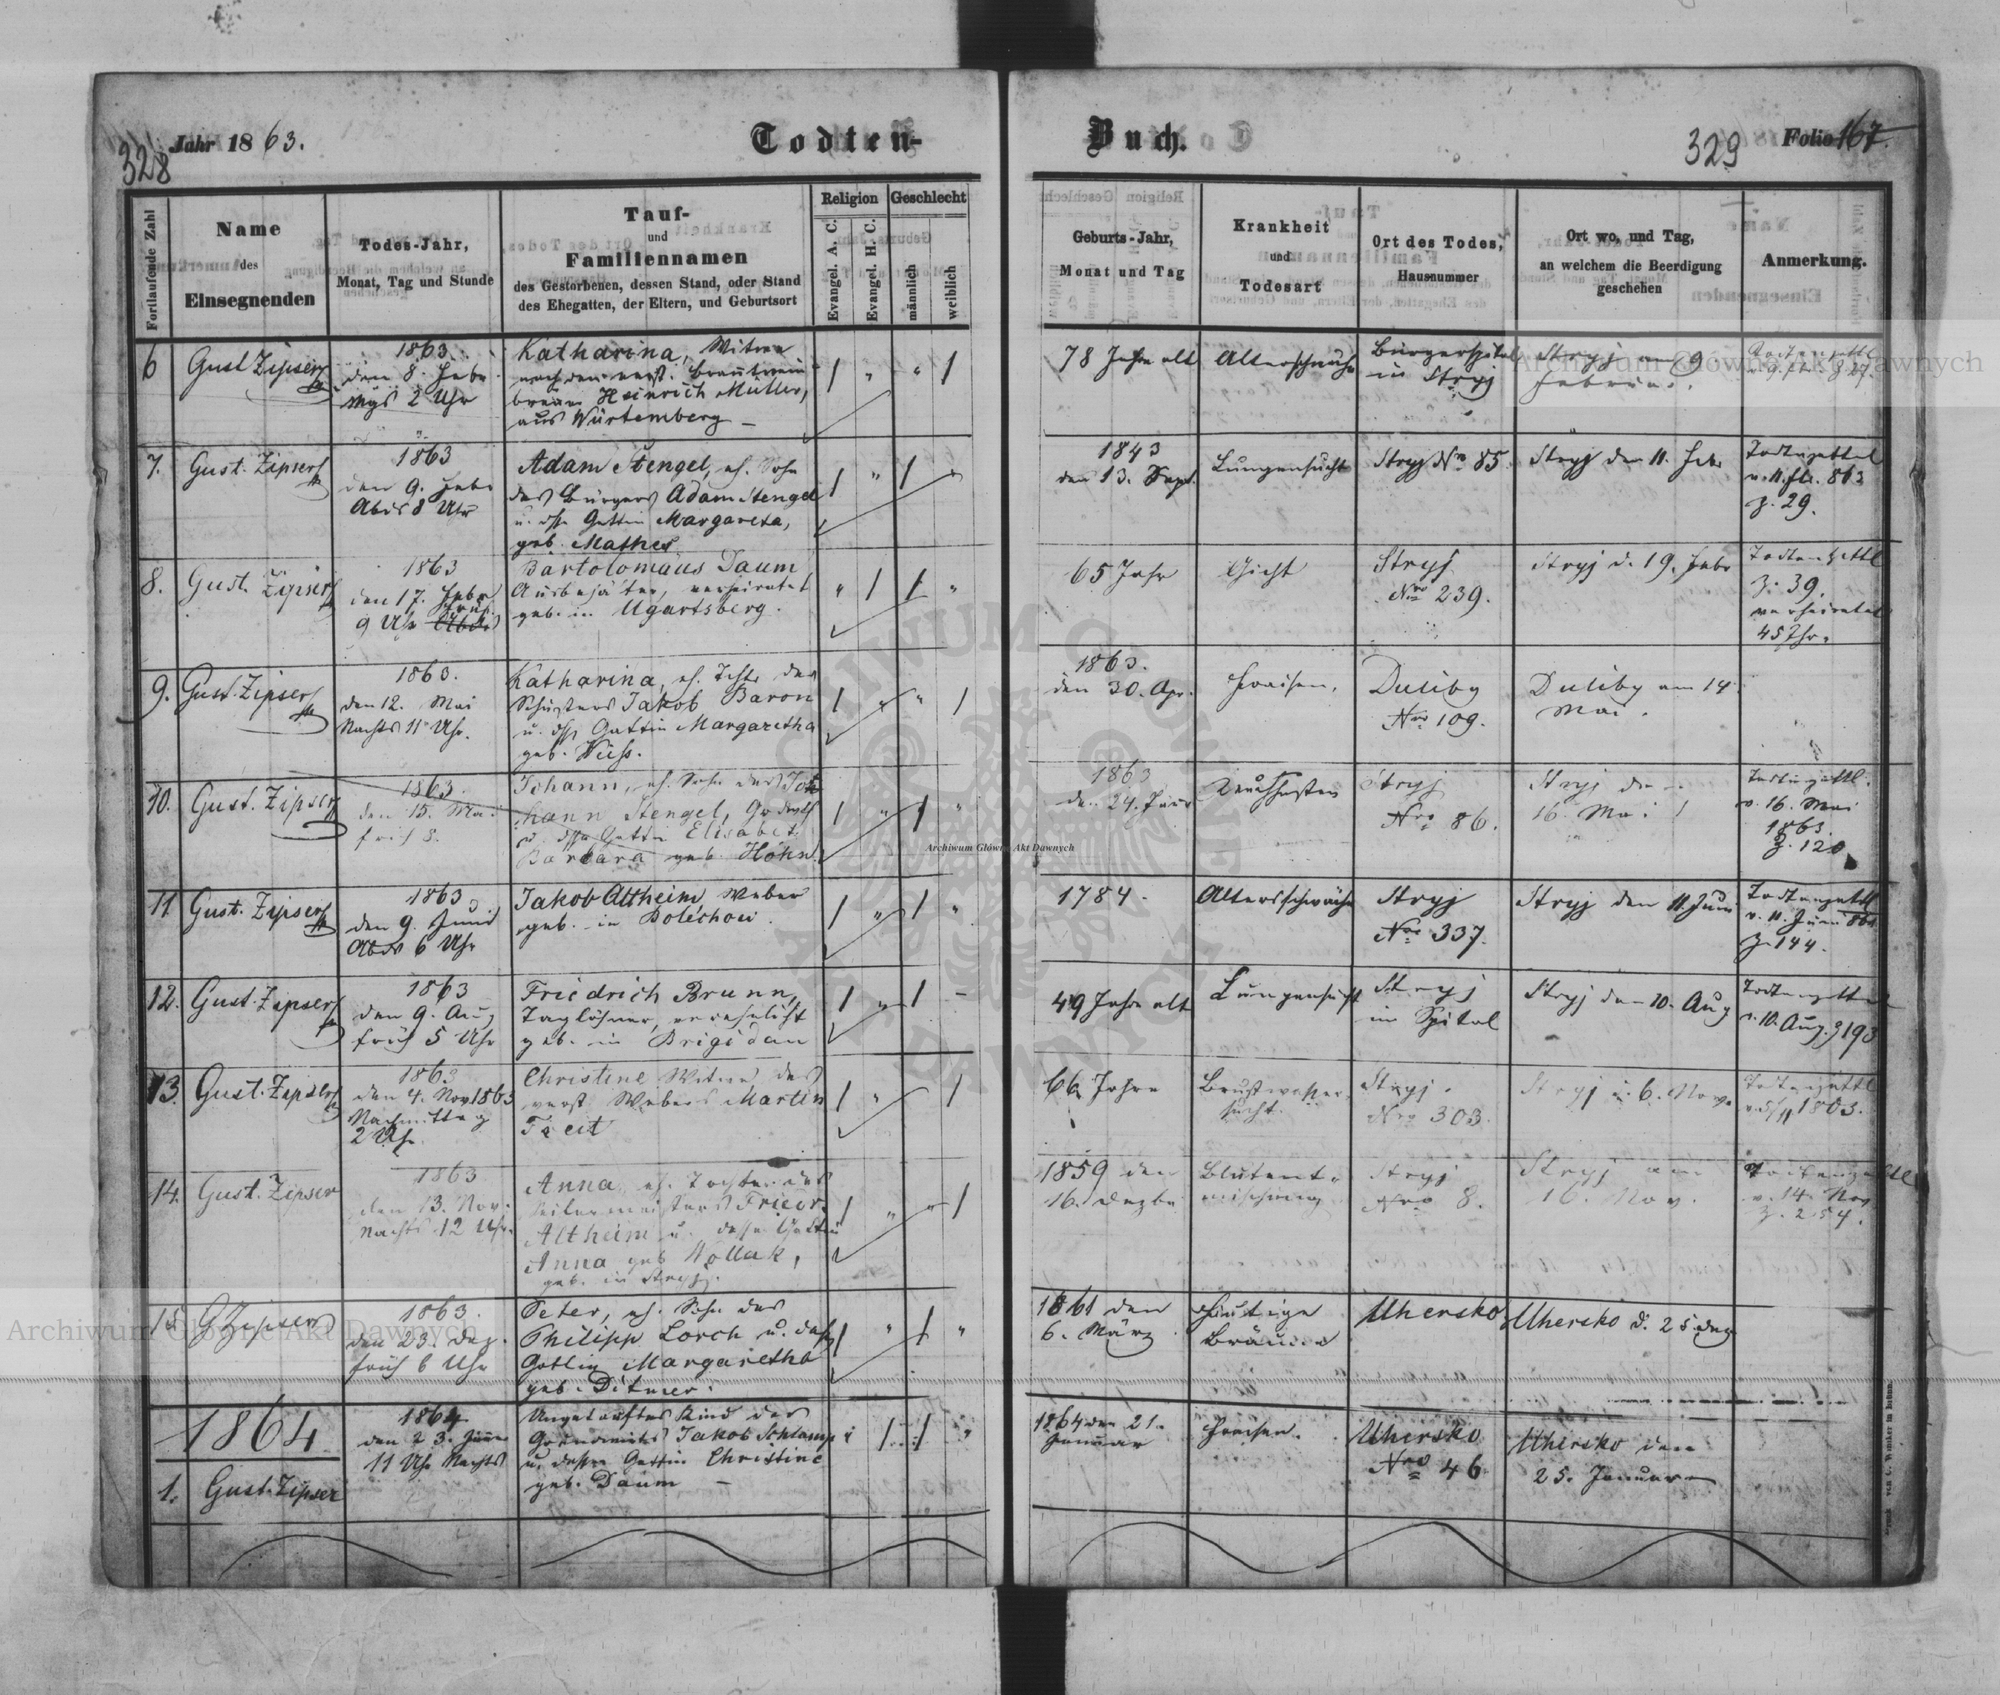 328
Jahr 1863.
Todten-
Buch.
329
Folio 167.
Fortlaufende Zahl
Name
des
Einsegnenden
Todes-Jahr,
Monat, Tag und Stunde
Tauf-
und
Familiennamen
des Gestorbenen, dessen Stand, oder Stand
des Ehegatten, der Eltern, und Geburtsort
Religion
Geschlecht
Evangel. A. C.
Evangel. H. C.
männlich
weiblich
Geburts-Jahr,
Monat und Tag
Krankheit
und
Todesart
Ort des Todes,
Hausnummer
Ort wo, und Tag,
an welchem die Beerdigung
geschehen
Anmerkung.
6
Gust Zipser
1863
den 8. Febr
Mgs 2 Uhr
Katharina, Witwe
nach dem verst. Brantwein-
brenner Heinrich Müller,
aus Würtemberg
78 Jahre alt
Altersschwäche
Bürgerspital
in Stryj
Stryj am 9
Februar.
7.
Gust. Zipser
1863
den 9. Febr
Abds 8 Uhr
Adam Stengel, eh. Sohn
des Bürgers Adam Stengel
u. dssn Gattin Margareta,
geb. Mathes
1843
den 13. Sept.
Lungensucht
Stryj Nro 85.
Stryj den 11. Febr
Todtenzettel
v. 11. Feb. 863
Z. 29.
8.
Gust. Zipser
1863
den 17. Febr
früh
9 Uhr Abds
Bartolomäus Daum
verheiratet
geb. in Ugartsberg.
65 Jahr
Gicht
Stryj
Nro 239.
Stryj d. 19. Febr
Todtenzettl
Z. 39.
verheiratet
45 Jhr.
9.
Gust. Zipser
1863.
den 12. Mai
Nachts 11 Uhr.
Katharina, eh. Tchtr des
Schusters Jakob Baron
u. dssn Gattin Margaretha
geb.
1863.
den 30. Apr.
Fraisen,
Duliby
Nro 109.
Duliby am 14
Mai.
10.
Gust. Zipser
1863.
den 15. Mai
früh 8.
Johann, eh. Sohn des Joh
hann Stengel,
u. dssn Gattin Elisabet
Barbara geb. Höhn.
1863
den 24. Jän
Keuchhusten
Stryj
Nro 86.
Stryj den
16. Mai
Todtenzettl.
v. 16. Mai
1863.
Z. 120
11
Gust. Zipser
1863
den 9. Juni
Abds 6 Uhr
Jakob Altheim, Weber
geb. in Bolechow.
1784.
Altersschwäche
Stryj
Nro 337.
Stryj den 11. Juni
Todtenzettl
v. 11. Juni 863
Z. 144.
12.
Gust. Zipser
1863
den 9. Aug
früh 5 Uhr
Friedrich Brunn,
Taglöhner, verehelicht
geb. in Brigidau
49 Jahre alt
Lungensucht
Stryj
im Spital
Stryj den 10. Aug
Todtenzettel
v. 10. Aug. Z 193
13.
Gust. Zipser
1863
den 4. Nov 1863
Nachmittag
2 Uhr.
Christine Witwe des
verst. Webers Martin
Treit
66 Jahre
Brustwasser-
sucht.
Stryj.
Nro 303.
Stryj d. 6. Nov.
Todtenzettl
v. 5/11 1863.
14.
Gust. Zipser
1863
den 13. Nov.
Nachts 12 Uhr.
Anna, eh. Tochter des
Seilermeisters Friedr.
Altheim u. dessen Gattin
Anna geb. Hollak,
geb. in Stryj.
1859 den
16. Dezbr.
Blutent-
mischung
Stryj
Nro 8.
Stryj am
16. Nov.
Todtenzettel
v. 14. Nov
Z. 254.
15.
G Zipser
1863.
den 23. Dez.
früh 6 Uhr
Peter, eh. Sohn des
Philipp Lorch u. dssn
Gattin Margaretha
geb. Ditmer.
1861 den
6. März
Häutige
Bräune
Uhersko
Uhersko d. 25. Dez
1864
1.
Gust. Zipser
1864
den 23. Jänner
11 Uhr Nachts
Ungetauftes Kind des
Jakob Schlamp
u. dessen Gattin Christine
geb. Daum
1864 den 21.
Januar
Fraisen.
Uhersko
Nro 46
Uhersko den
25. Januar
Archiwum Główne Akt Dawnych
Archiwum Główne Akt Dawnych
Archiwum Główne Akt Dawnych